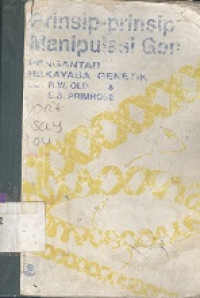 Prinsip-prinsip
Manipulasi Gen
PENGANTAR
REKAYASA GENETIK
R.W. OLD &
S.B. PRIMROSE
say